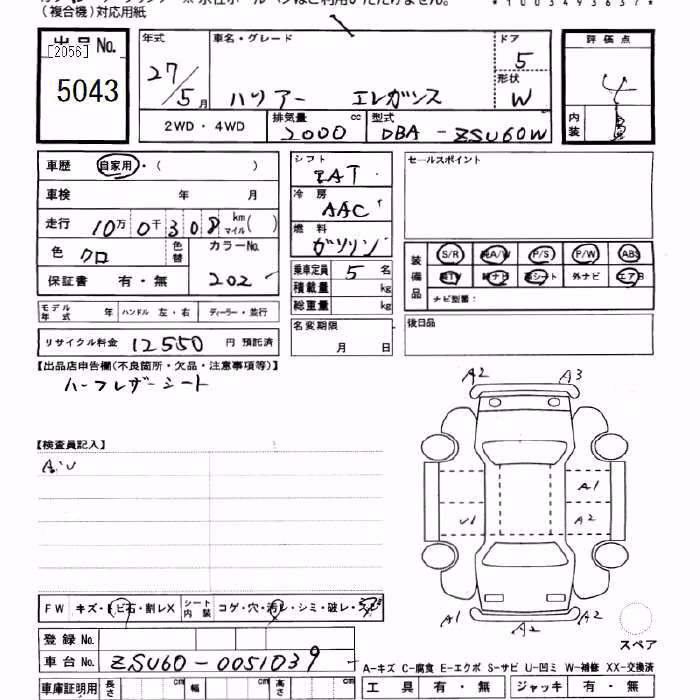 (複合機)対応用紙
出品No. [2056] 5043
年式 27/5月
車名・グレード ハリアー エレガンス
ドア 5
形状 W
評価点 4
内装 B
2WD・4WD
排気量 cc 2000
型式 DBA-ZSU60W
車歴 自家用・( )
車検 年 月
走行 10万0千308 km マイル( )
色 クロ 色替 カラーNo. 202
保証書 有・無
シフト IAT
冷房 AAC
燃料 ガソリン
乗車定員 5名
積載量 kg
総重量 kg
名変期限 月 日
セールスポイント
装備品 S/R 純A/W P/S P/W ABS
純TV 純ナビ 革シート 外ナビ エアB
ナビ型番:
後日品
モデル年式 年 ハンドル 左・右 ディーラー・並行
リサイクル料金 12550 円 預託済
【出品店申告欄(不良箇所・欠品・注意事項等)】
ハーフレザーシート
【検査員記入】
A2 A3
A1
U1 A2
A1 A2 A2
スペア
FW キズ・トビ石・割レX シート内装 コゲ・穴・汚レ・シミ・破レ
登録No.
車台No. ZSU60-0051039
車庫証明用 長さ cm 幅 cm 高さ cm
A-キズ C-腐食 E-エクボ S-サビ U-凹ミ W-補修 XX-交換済
工具 有・無 ジャッキ 有・無